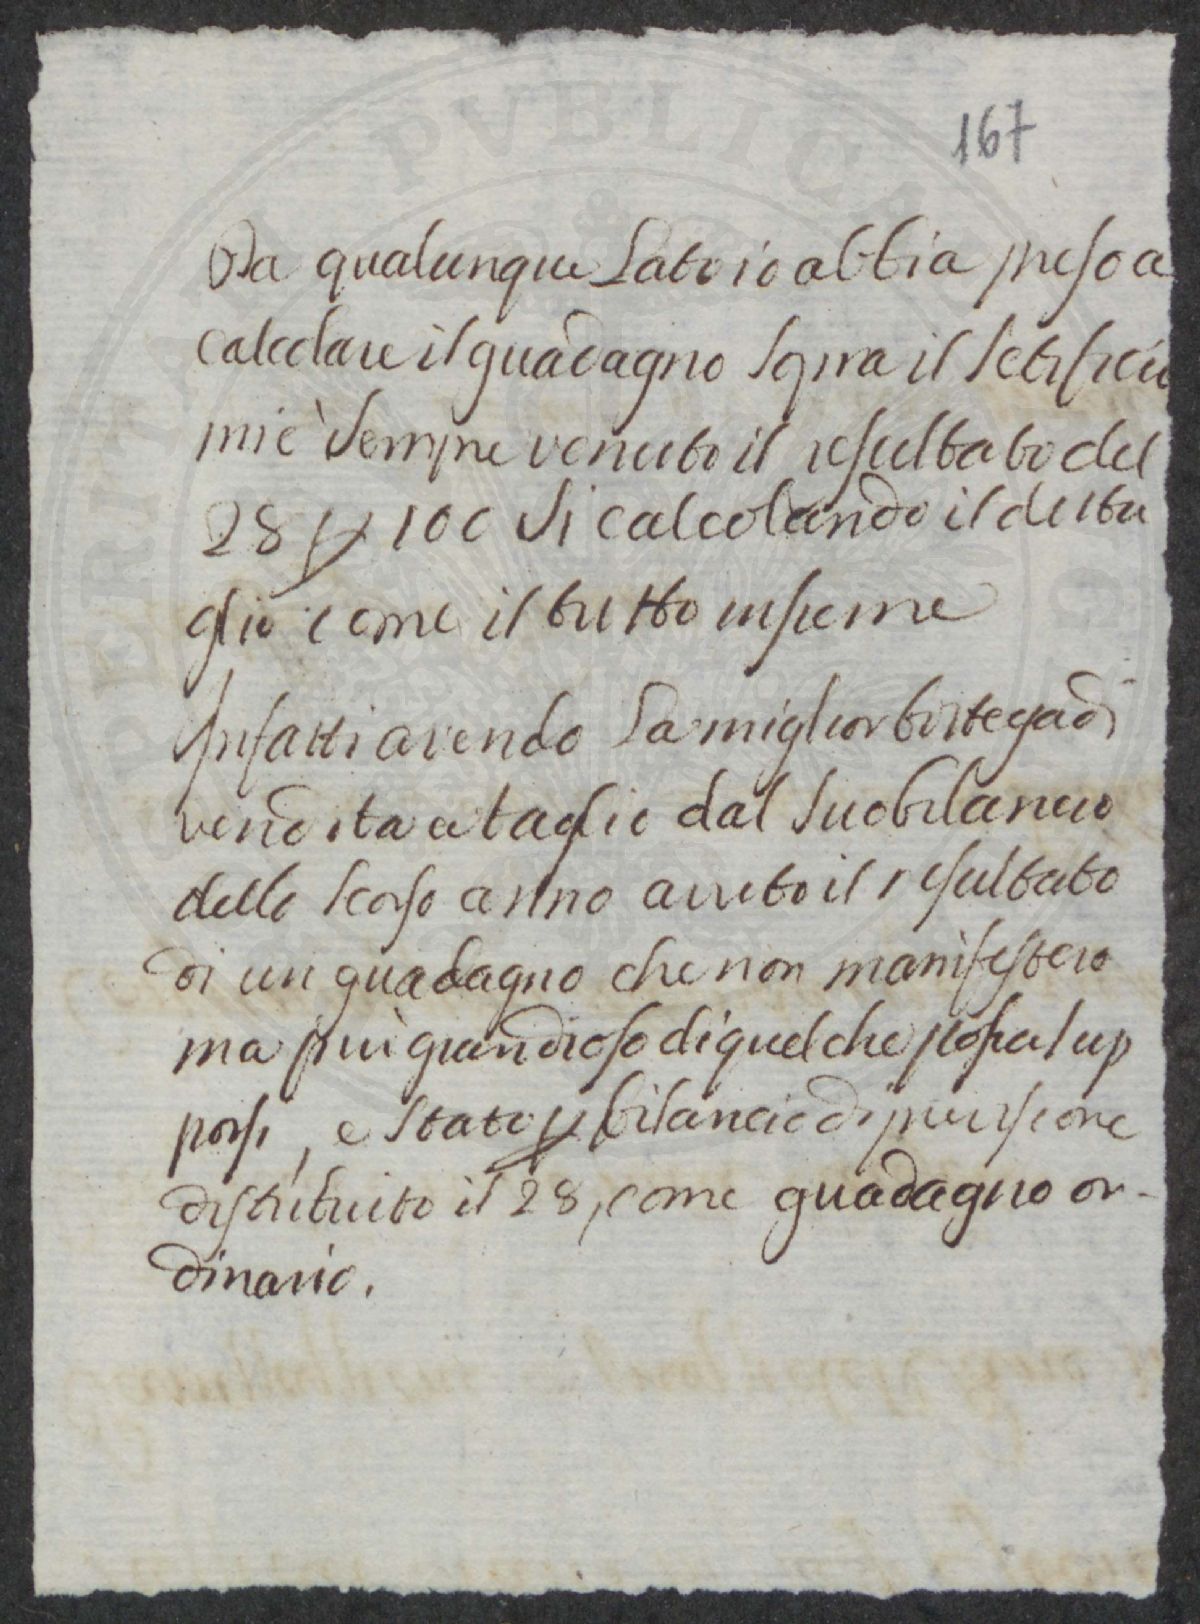 167
Da qualunque Lato io abbia preso a
calcolare il guadagno sopra il Setificio
mi è sempre venuto il resultato del
28 p 100 si calcolando il detta
glio come il tutto insieme
Infatti avendo La miglior bottega di
vendita a taglio dal suo bilancio
dello scorso anno avuto il resultato
di un guadagno che non manifestero
ma più grandioso di quel che possa sup
porsi, e stato p bilancio di
distribuito il 28, come guadagno or-
dinario.